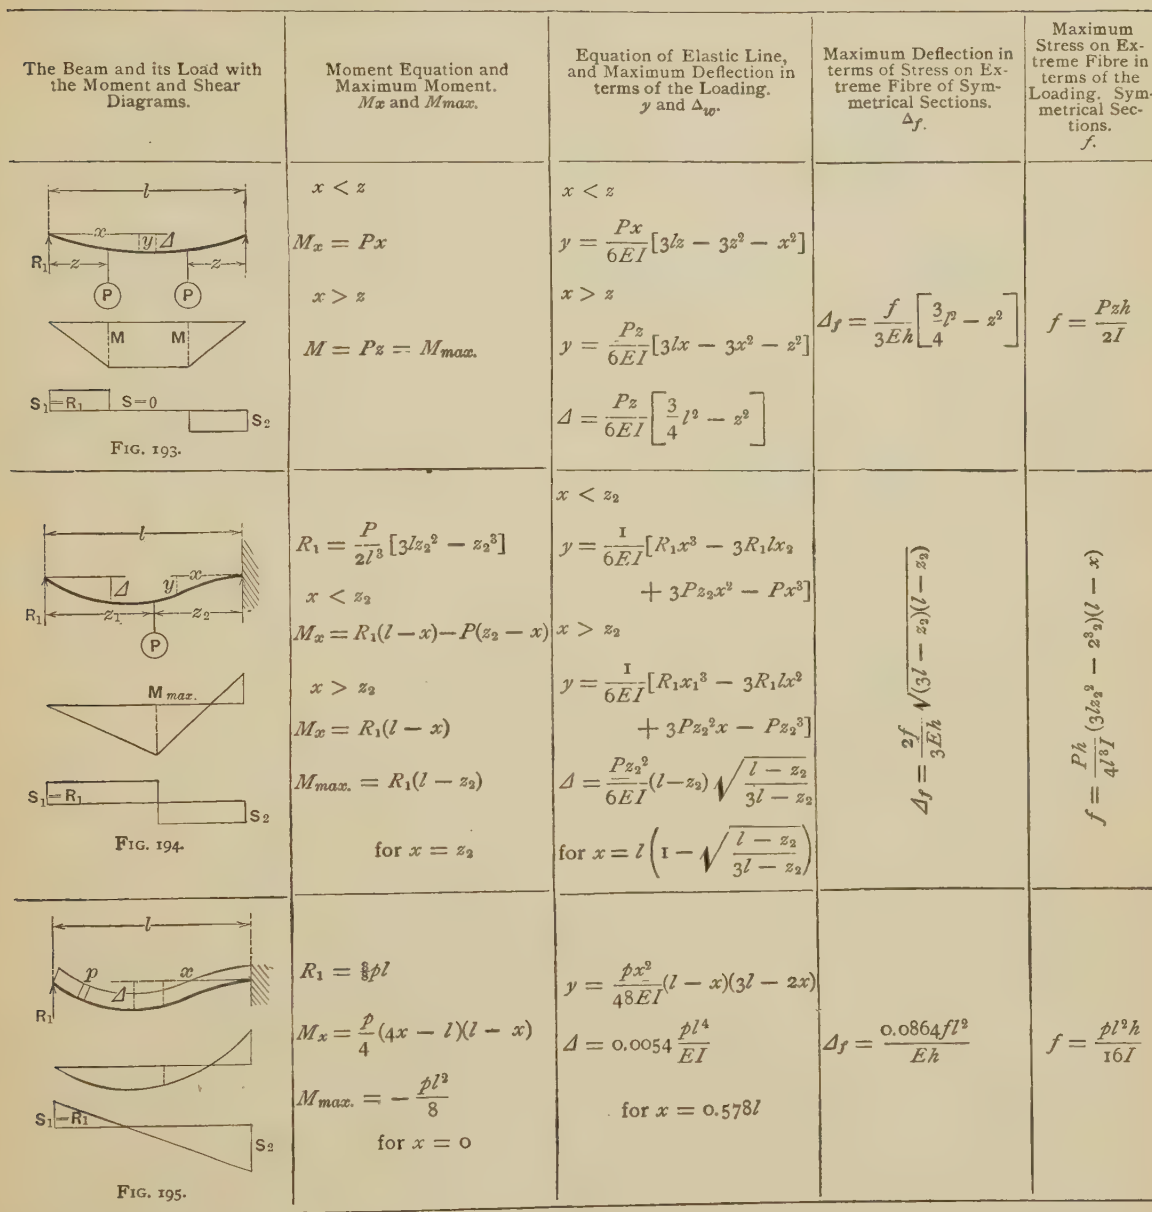 The Beam and its Load with
the Moment and Shear
Diagrams.
Moment Equation and
Maximum Moment.
Mx and Mmax.
Equation of Elastic Line,
and Maximum Deflection in
terms of the Loading.
y and Δw.
Maximum Deflection in
terms of Stress on Ex-
treme Fibre of Sym-
metrical Sections.
Δf.
Maximum
Stress on Ex-
treme Fibre in
terms of the
Loading. Sym-
metrical Sec-
tions.
f.
l
x
y Δ
R₁ z z
P P
M M
S₁=R₁ S=0
S₂
FIG. 193.
x < z
Mₓ = Px
x > z
M = Pz = Mmax.
x < z
y = Px/6EI [3lz − 3z² − x²]
x > z
y = Pz/6EI [3lx − 3x² − z²]
Δ = Pz/6EI [3/4 l² − z²]
Δf = f/3Eh [3/4 l² − z²]
f = Pzh/2I
l
Δ y x
R₁ z₁ z₂
P
M max.
S₁=R₁
S₂
FIG. 194.
R₁ = P/2l³ [3lz₂² − z₂³]
x < z₂
Mₓ = R₁(l − x) − P(z₂ − x)
x > z₂
Mₓ = R₁(l − x)
Mmax. = R₁(l − z₂)
for x = z₂
x < z₂
y = 1/6EI [R₁x³ − 3R₁lx₂
+ 3Pz₂x² − Px³]
x > z₂
y = 1/6EI [R₁x₁³ − 3R₁lx²
+ 3Pz₂²x − Pz₂³]
Δ = Pz₂²/6EI (l−z₂) √((l − z₂)/(3l − z₂))
for x = l (1 − √((l − z₂)/(3l − z₂)))
Δf = 2f/3Eh √((3l − z₂)(l − z₂))
f = Ph/4l³I (3lz₂² − 2³₂)(l − x)
l
p x
Δ
R₁
S₁=R₁
S₂
FIG. 195.
R₁ = ⅜pl
Mₓ = p/4 (4x − l)(l − x)
Mmax. = − pl²/8
for x = 0
y = px²/48EI (l − x)(3l − 2x)
Δ = 0.0054 pl⁴/EI
for x = 0.578l
Δf = 0.0864fl²/Eh
f = pl²h/16I